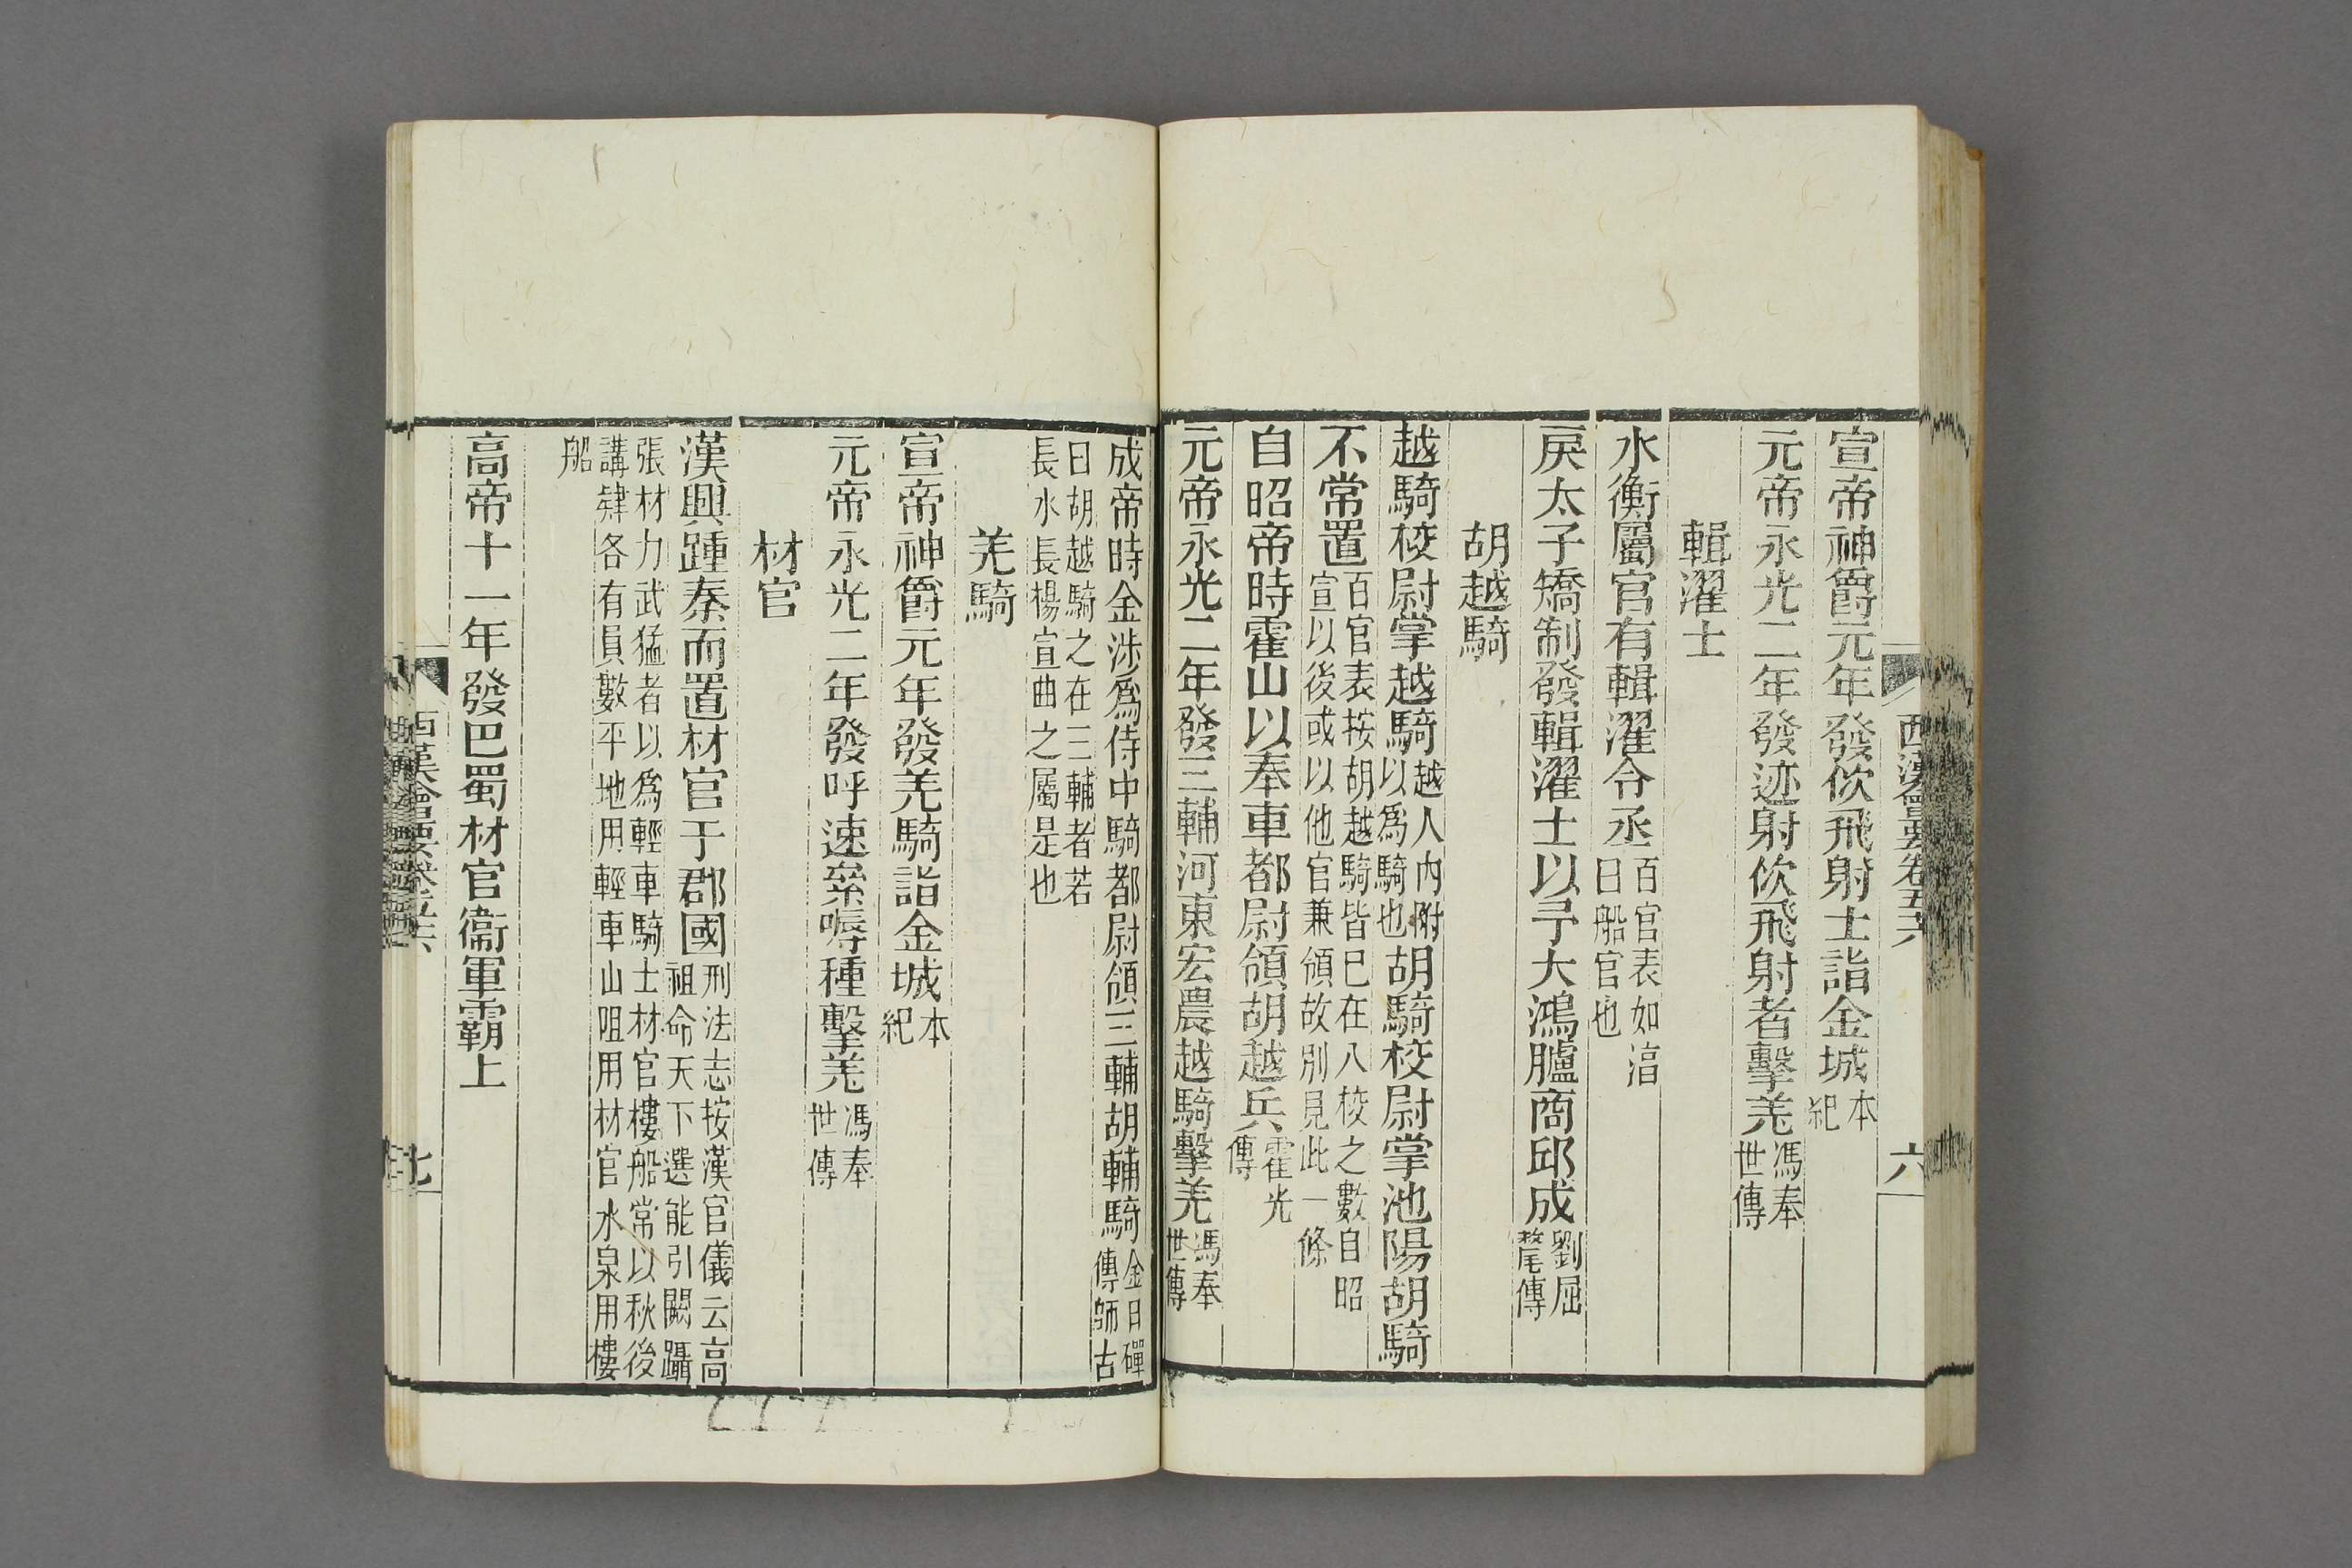 西漢會要卷五十六
六
宣帝神爵元年發佽飛射士詣金城本紀
元帝永光二年發迹射佽飛射者擊羌馮奉世傳
輯濯士
水衡屬官有輯濯令丞百官表如淳曰船官也
戾太子矯制發輯濯士以予大鴻臚商邱成劉屈氂傳
胡越騎
越騎校尉掌越騎越人內附以爲騎也胡騎校尉掌池陽胡騎
不常置百官表按胡越騎皆已在八校之數自昭宣以後或以他官兼領故別見此一條
自昭帝時霍山以奉車都尉領胡越兵霍光傳
元帝永光二年發三輔河東宏農越騎擊羌馮奉世傳
成帝時金涉爲侍中騎都尉領三輔胡輔騎金日磾傳師古
曰胡越騎之在三輔者若長水長楊宣曲之屬是也
羌騎
宣帝神爵元年發羌騎詣金城本紀
元帝永光二年發呼速絫嗕種擊羌馮奉世傳
材官
漢興踵秦而置材官于郡國刑法志按漢官儀云高祖命天下選能引關蹶
張材力武猛者以爲輕車騎士材官樓船常以秋後講肄各有員數平地用輕車山阻用材官水泉用樓
船
高帝十一年發巴蜀材官衞軍霸上
西漢會要卷五十六
七